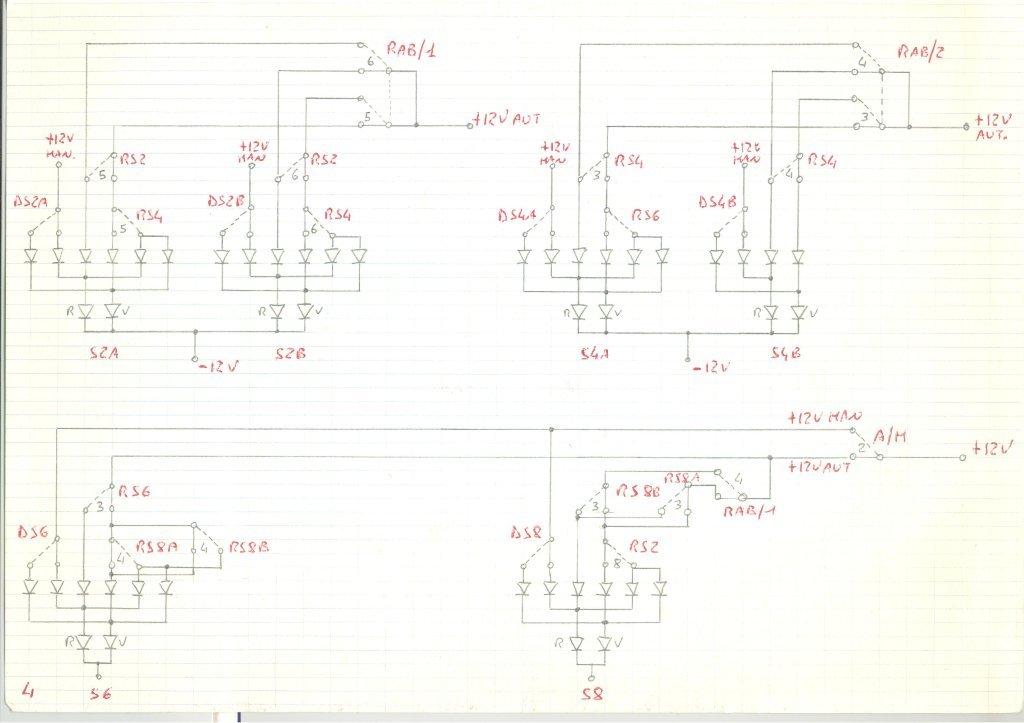 RAB/1
RAB/2
6
4
5
+12V AUT
3
+12V
AUT.
+12V
MAN.
RS2
+12V
MAN
RS2
+12V
MAN
RS4
+12V
MAN
RS4
5
6
3
4
DS2A
RS4
DS2B
RS4
DS4A
RS6
DS4B
5
6
R
V
R
V
R
V
R
V
S2A
S2B
S4A
S4B
-12V
-12V
+12V MAN
A/M
2
+12V
+12V AUT
RS6
RS8B
RS8A
4
RAB/1
3
3
3
DS6
RS8A
4
RS8B
4
DS8
RS2
8
R
V
R
V
4
S6
S8